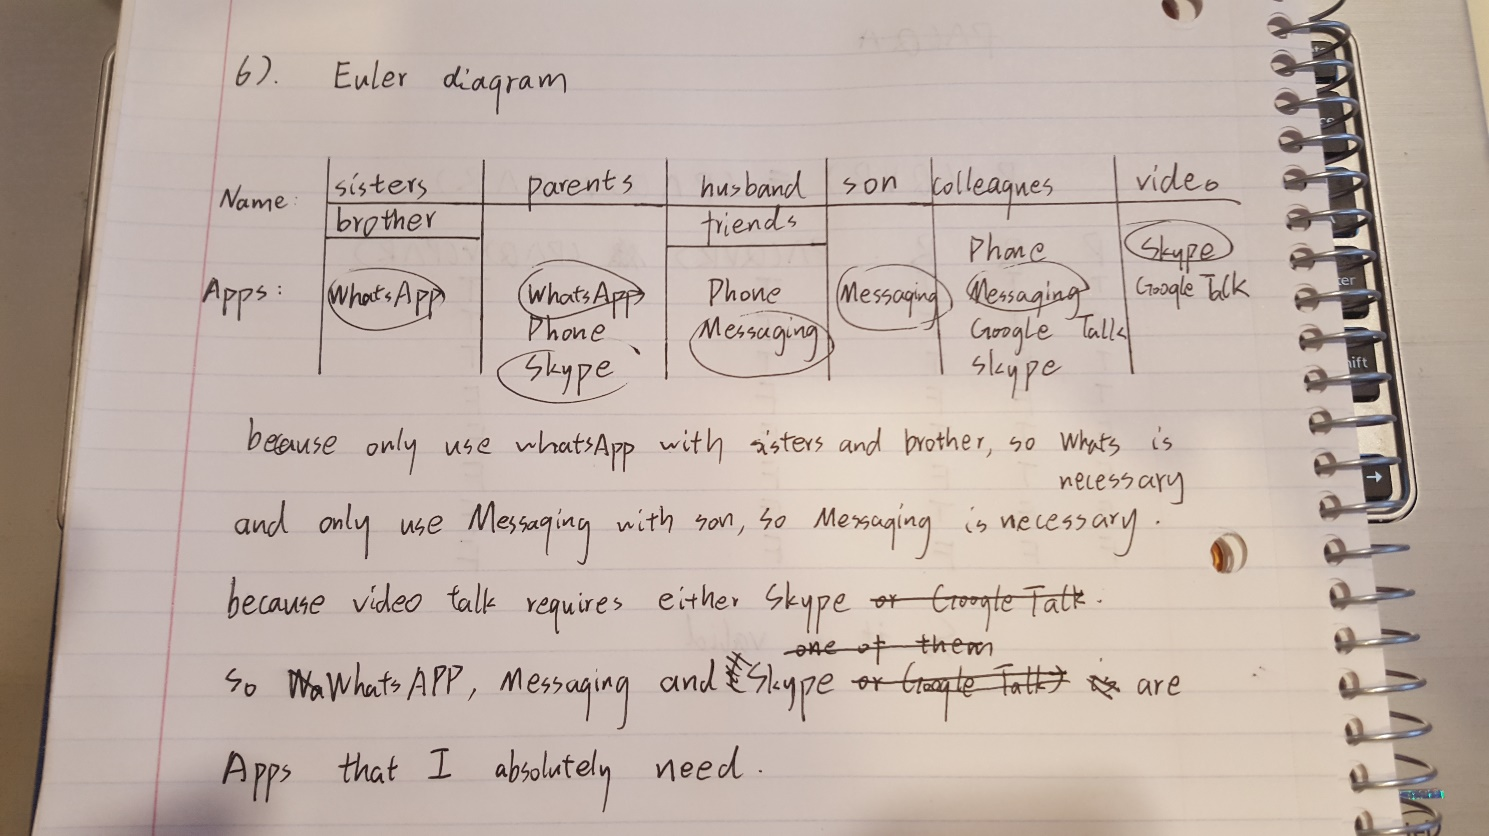 6). Euler diagram
Name: sisters parents husband son colleagues video
brother friends
Apps: WhatsApp WhatsApp Phone Messaging Phone Skype
Phone Messaging Messaging Google Talk
Skype Google Talk
Skype
because only use whatsApp with sisters and brother, so Whats is
necessary
and only use Messaging with son, so Messaging is necessary.
because video talk requires either Skype or Google Talk.
one of them
so WhatsAPP, Messaging and Skype or Google Talk) is are
Apps that I absolutely need.